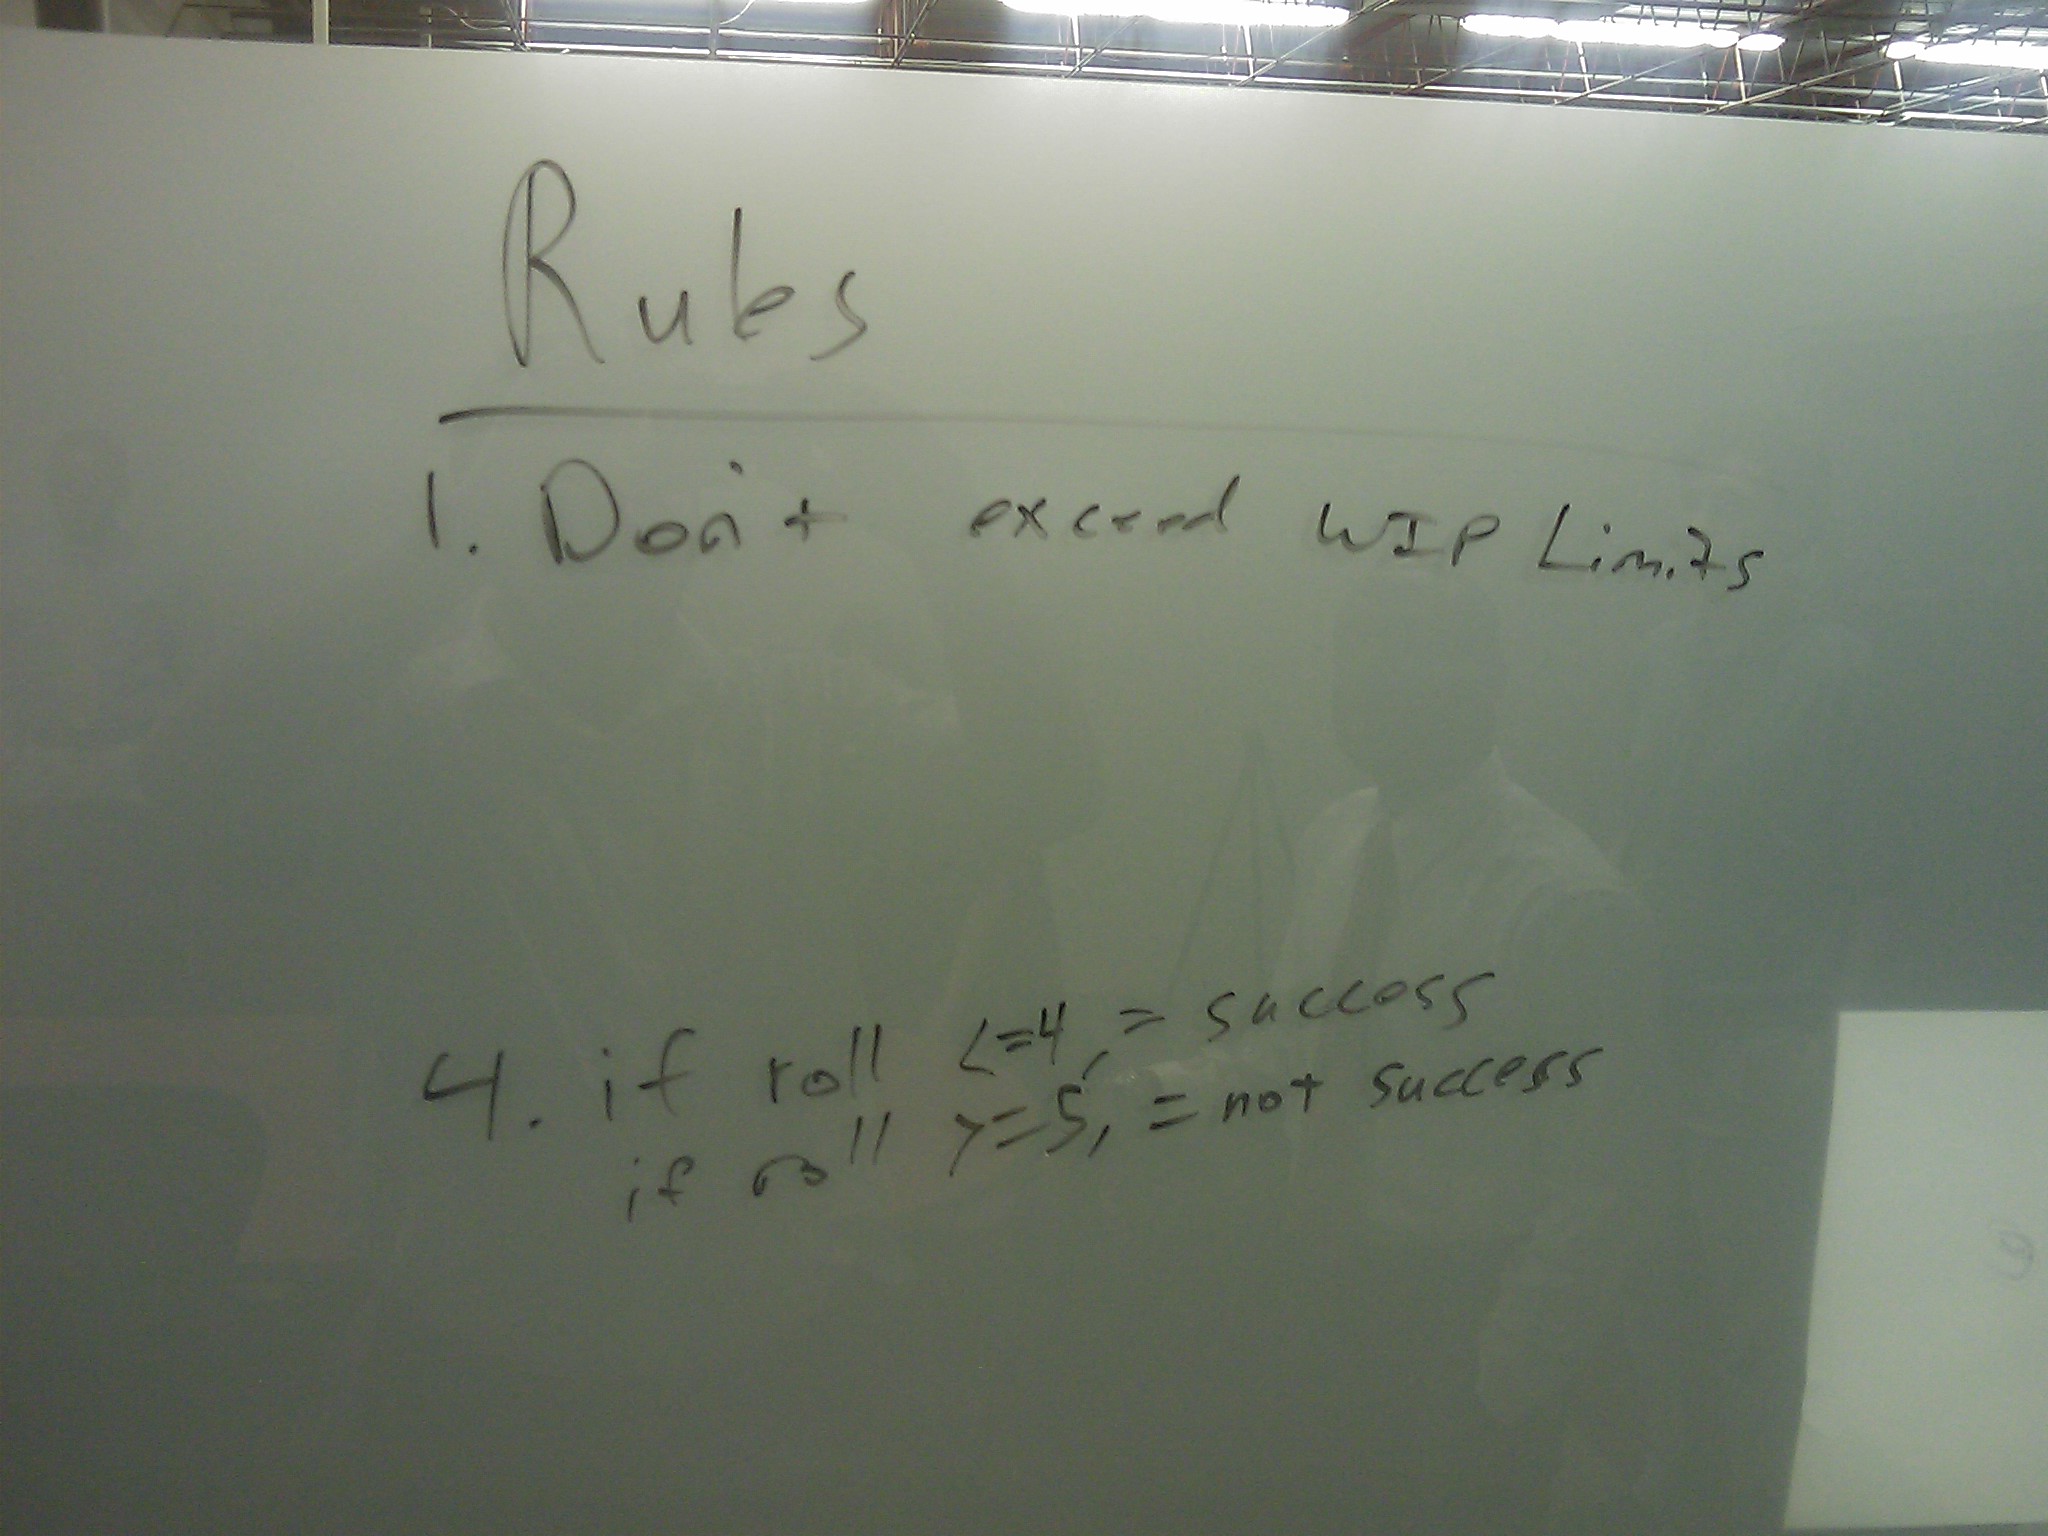 Rules
1. Don't exceed WIP Limits
4. if roll <=4, = success
if roll >=5, = not success